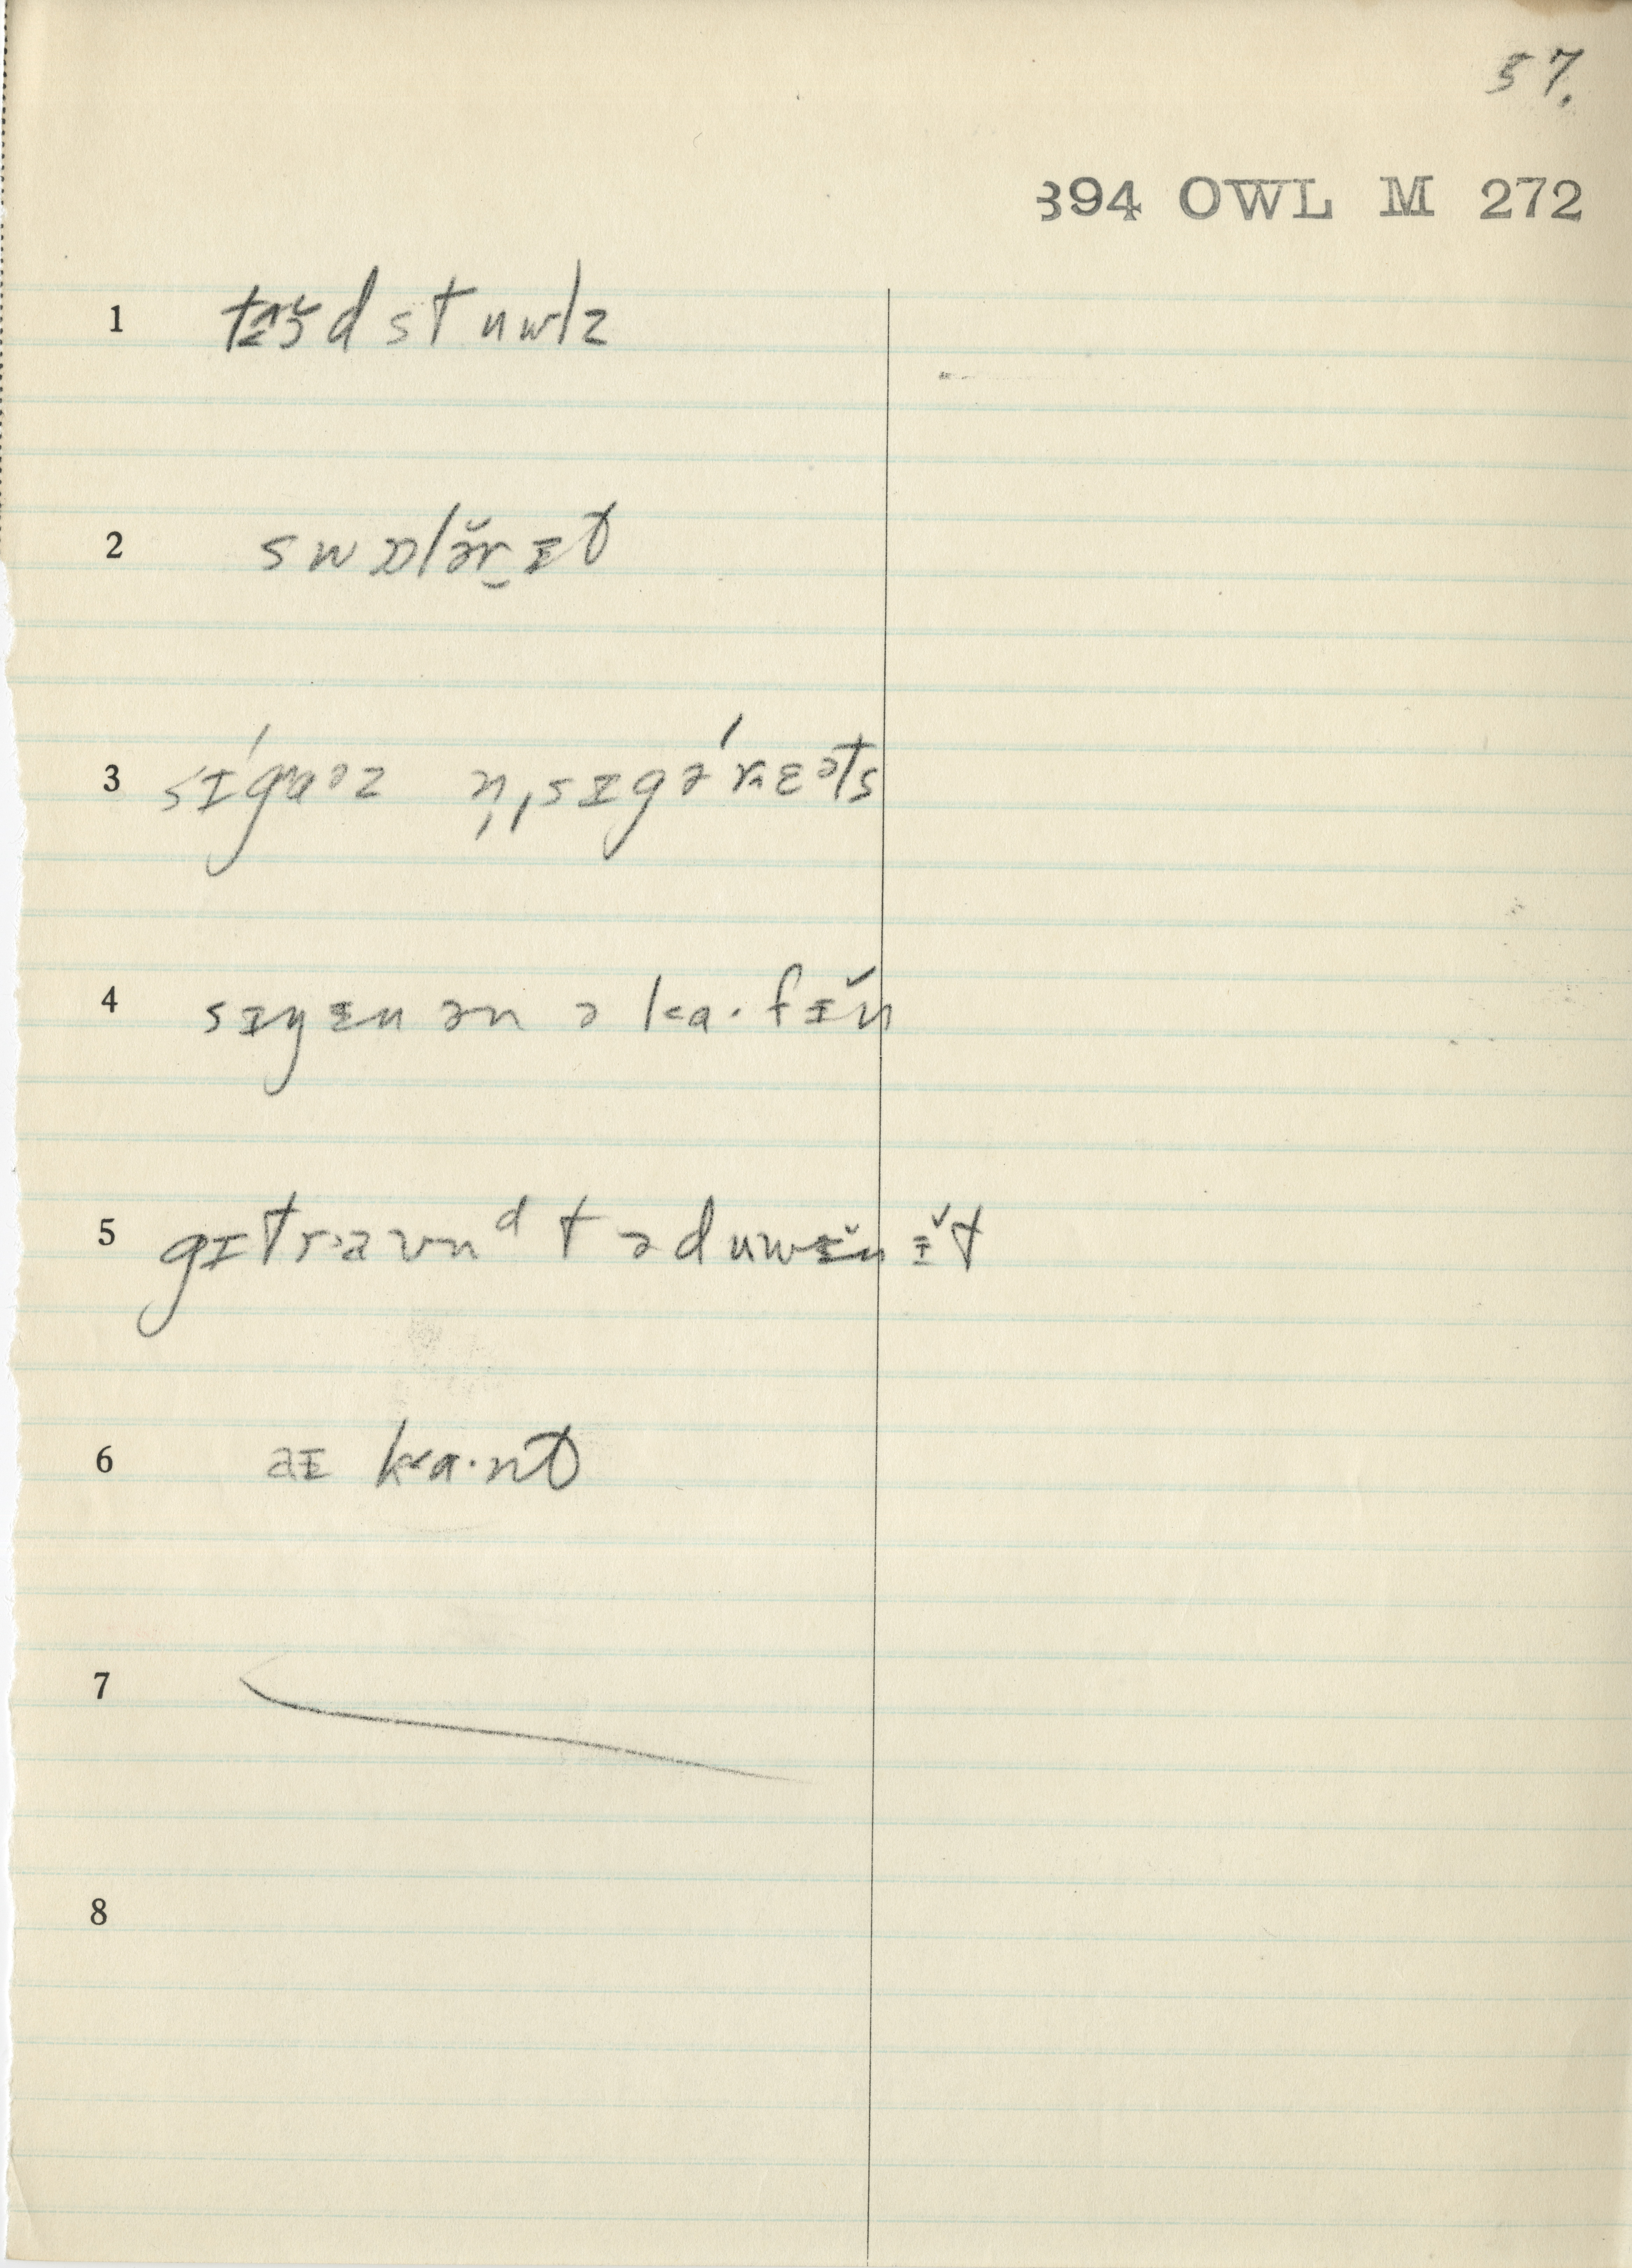 57.
394 OWL M 272
1 tɪɜd stuwlz
2 swɒlə̆r̬ɪt
3 sɪ́gaəz n̩ˌsɪgəŕɛəts
4 sɪyɪu ən ə ka·fɪ̆n
5 gɪtraʊnᵈ tə duwɪ̆n ɪ̆t
6 aɪ ka·nt
7
8